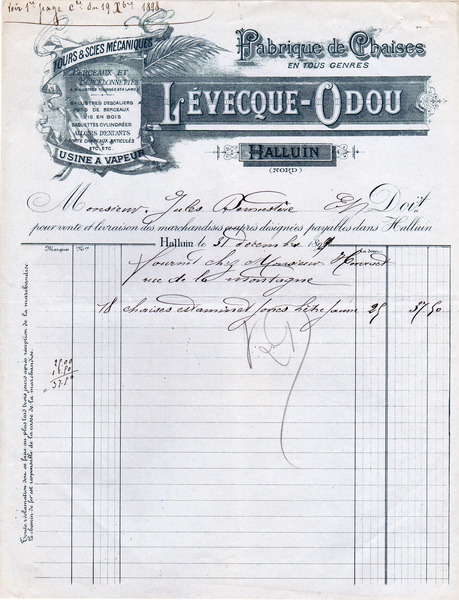 Voir 1re page Cte du 19 Xbre 1898
TOURS & SCIES MÉCANIQUES
BERCEAUX ET BERCEONNETTES
BALUSTRES D'ESCALIERS
VIS EN BOIS
BAGUETTES CYLINDRÉES
ALGERS D'ENFANTS
PORTE CHAPEAUX ARTICULÉS
ETC. ETC.
USINE A VAPEUR
Fabrique de Chaises
EN TOUS GENRES
LÉVECQUE-ODOU
HALLUIN
(NORD)
Monsieur Jules Doit
pour vente et livraison des marchandises ci-après désignées payables dans Halluin
Halluin le 31 Décembre 189
Marques Nos
fourni chez Monsieur
rue de la montagne
18 chaises estaminet hêtre jaune 25 37.50
25.00
12.50
37.50
Toute réclamation doit se faire au plus tard trois jours après réception de la marchandise.
Le chemin de fer est responsable de la casse de la marchandise.